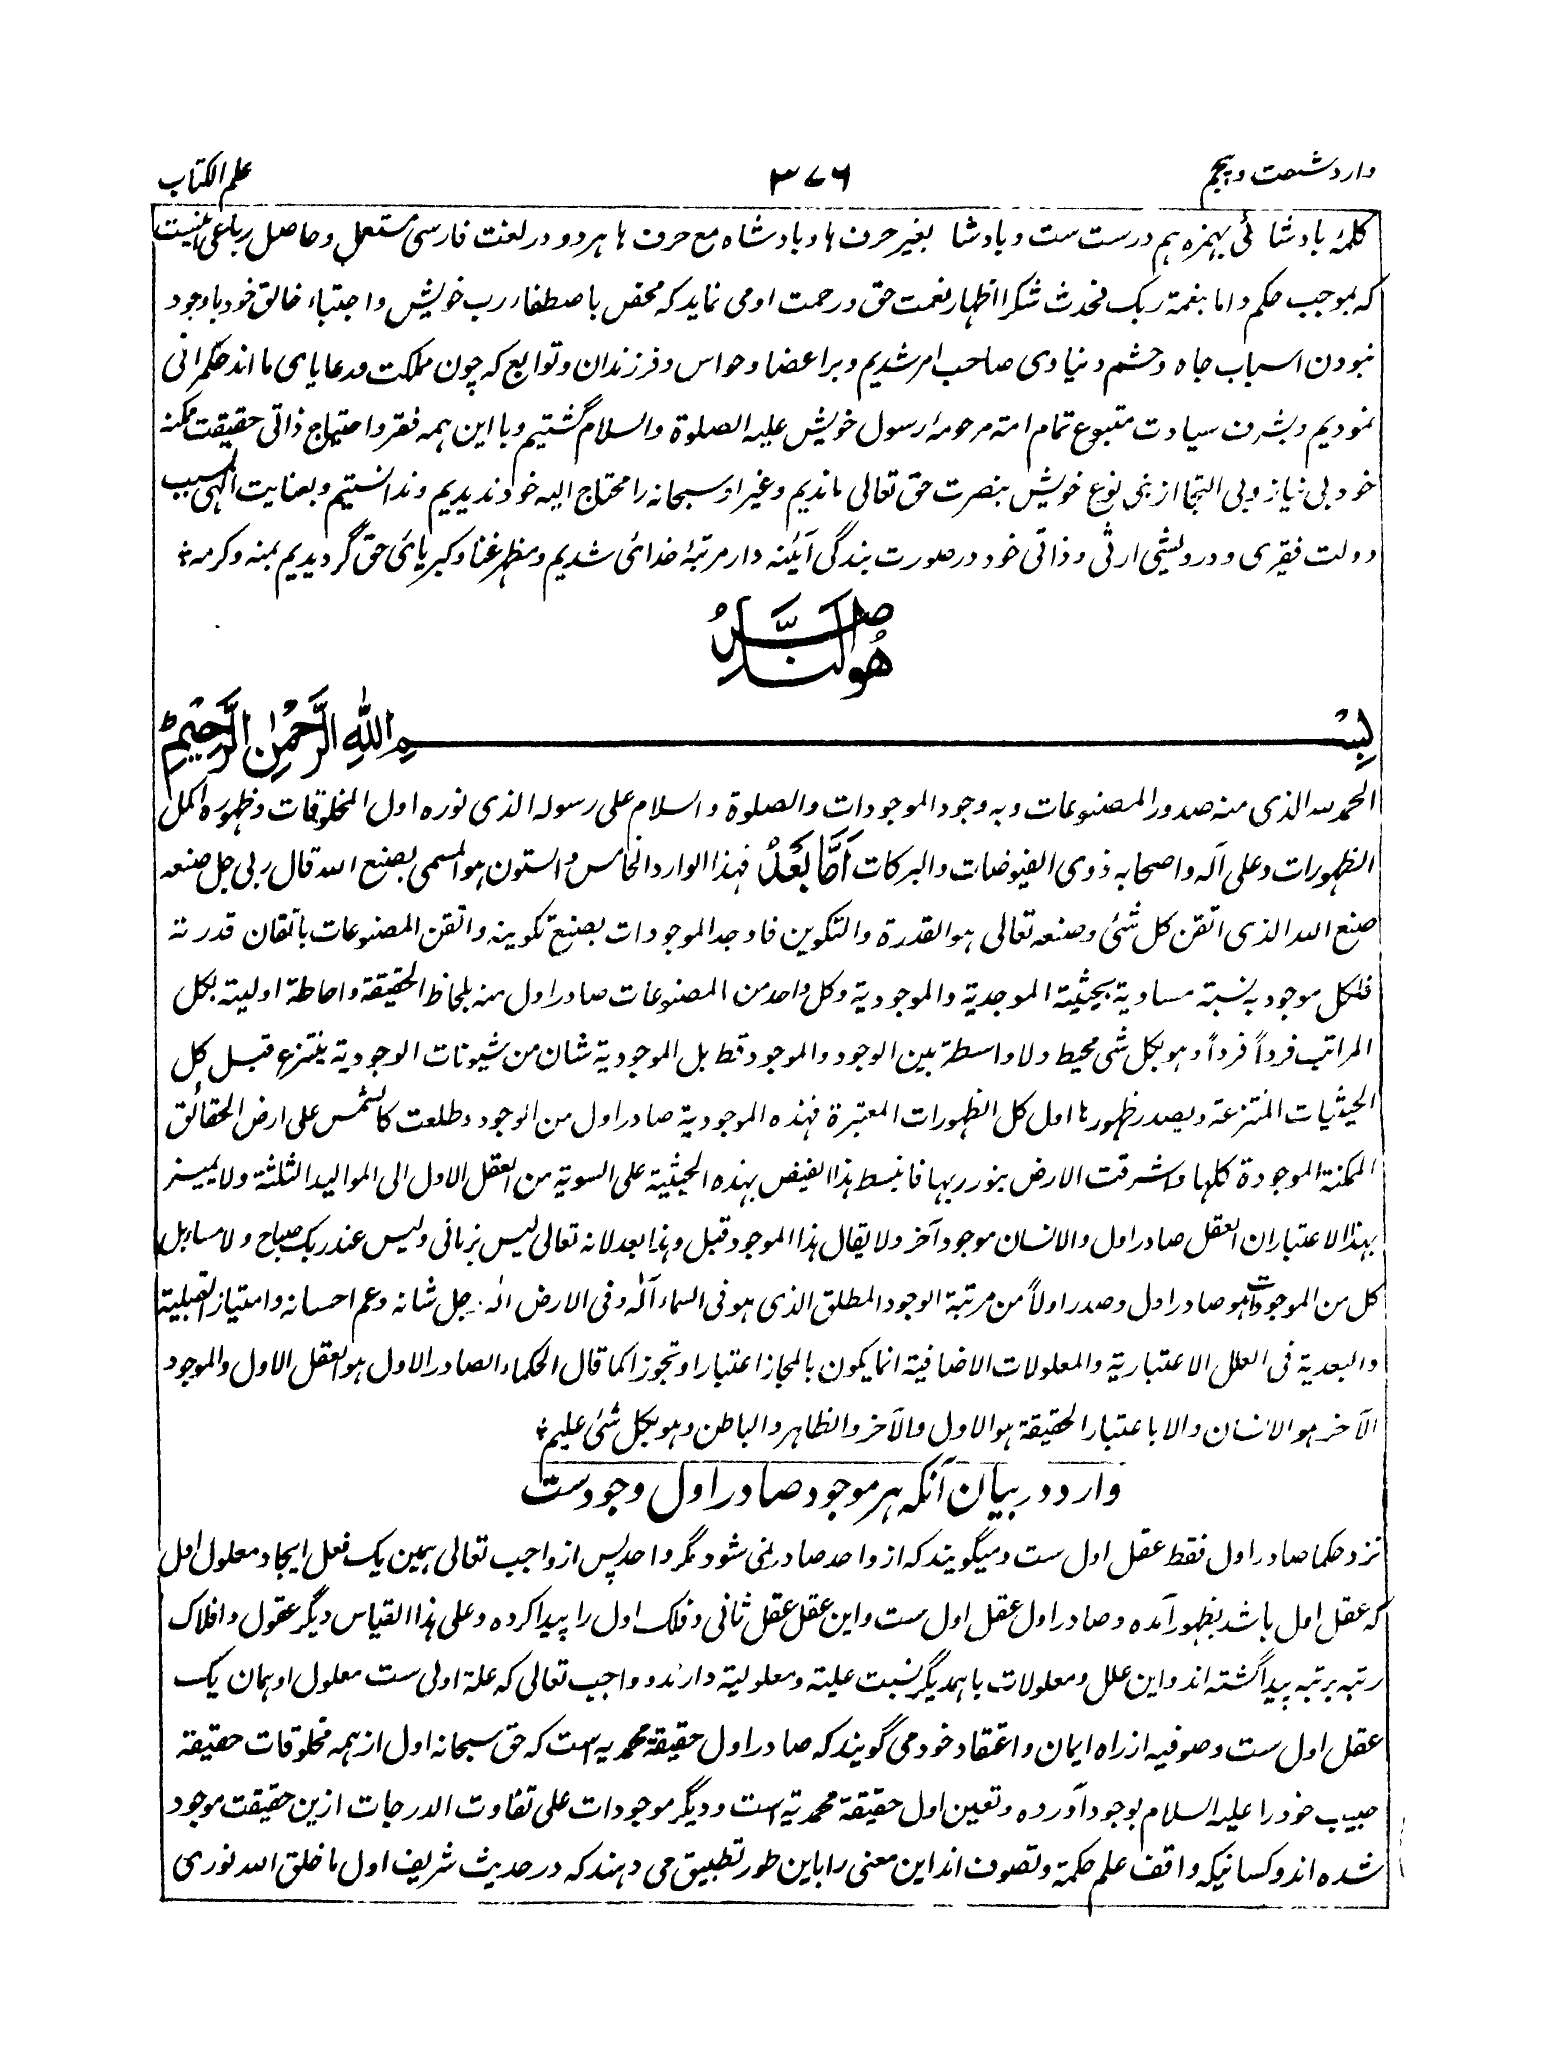 وارد شصت و پنجم
۳۷۶
علم الکتاب
کلمهٔ بادشائی بهمزه هم درست ست و بادشا بغیر حرف ها و بادشاه مع حرف ها هر دو در لغت فارسی مستعمل و حاصل رباعی اینست
که بموجب حکم و اما بنعمة ربک فحدث شکرا اظهار نعمت حق و رحمت او می نماید که محض باصطفاء رب خویش و اجتباء خالق خود باوجود
نبودن اسباب جاه و حشم دنیاوی صاحب امر شدیم و بر اعضا و حواس و فرزندان و توابع که چون مملکت و رعایای ما اند حکمرانی
نمودیم و بشرف سیادت متبوع تمام امته مرحومهٔ رسول خویش علیه الصلوة والسلام گشتیم و با این همه فقر و احتیاج ذاتی حقیقت ممکنه
خود بی نیاز و بی التجا از بنی نوع خویش بنصرت حق تعالی ماندیم و غیر او سبحانه را محتاج الیه خود ندیدیم و ندانستیم و بعنایت الهی بسبب
دولت فقیری و درویشی ارثی و ذاتی خود در صورت بندگی آئینه دار مرتبهٔ خدائی شدیم و مظهر غنا و کبریائی حق گردیدیم بمنه و کرمه
هو الناصر
بِسْمِ اللهِ الرَّحْمٰنِ الرَّحِيْمِ
الحمد لله الذی منه صدور المصنوعات و به وجود الموجودات والصلوة والسلام علی رسوله الذی نوره اول المخلوقات وظهوره اکمل
الظهورات وعلی آله واصحابه ذوی الفیوضات والبرکات اَمَّا بَعْدُ فهذا الوارد الخامس والستون هو المسمی بصنع الله قال ربی جل صنعه
صنع الله الذی اتقن کل شئ وصنعه تعالی هو القدرة والتکوین فاوجد الموجودات بصنع تکوینه واتقن المصنوعات باتقان قدرته
فلکل موجود به نسبة مساویة بحیثیة الموجدیة والموجودیة وکل واحد من المصنوعات صادر اول منه بلحاظ الحقیقة واحاطة اولیته بکل
المراتب فرداً فرداً وهو بکل شی محیط ولا واسطة بین الوجود والموجود قط بل الموجودیة شان من شیونات الوجودیة ینتزع قبل کل
الحیثیات المنتزعة ویصدر ظهورها اول کل الظهورات المعتبرة فهذه الموجودیة صادر اول من الوجود وطلعت کالشمس علی ارض الحقائق
الممکنة الموجودة کلها واشرقت الارض بنور ربها فانبسط هذا الفیض بهذه الحیثیة علی السویة من العقل الاول الی الموالید الثلثة ولا یمیز
بهذا الاعتبار ان العقل صادر اول والانسان موجود آخر ولا یقال هذا الموجود قبل وهذا بعد لانه تعالی لیس بزمانی ولیس عند ربک صباح ولا مساء بل
کل من الموجودات هو صادر اول وصدر اولاً من مرتبة الوجود المطلق الذی هو فی السماء آله وفی الارض اله جل شانه وعم احسانه وامتیاز القبلیة
والبعدیة فی العلل الاعتباریة والمعلولات الاضافیة انما یکون بالمجاز اعتبارا وتجوزا کما قال الحکماء الصادر الاول هو العقل الاول والموجود
الآخر هو الانسان والا باعتبار الحقیقة هو الاول والآخر والظاهر والباطن وهو بکل شئ علیم
وارد در بیان آنکه هر موجود صادر اول وجودست
نزد حکما صادر اول فقط عقل اول ست و میگویند که از واحد صادر نمی شود مگر واحد پس از واجب تعالی همین یک فعل ایجاد معلول اول
که عقل اول باشد بظهور آمده و صادر اول عقل اول ست و این عقل عقل ثانی و فلک اول را پیدا کرده و علی هذا القیاس دیگر عقول و افلاک
رتبه برتبه پیدا گشته اند و این علل و معلولات باهمدیگر نسبت علیته و معلولیته دارند و واجب تعالی که علة اولی ست معلول او همان یک
عقل اول ست و صوفیه از راه ایمان و اعتقاد خود می گویند که صادر اول حقیقة محمدیه است که حق سبحانه اول از همه مخلوقات حقیقة
حبیب خود را علیه السلام بوجود آورده و تعین اول حقیقة محمدیه است و دیگر موجودات علی تفاوت الدرجات ازین حقیقت موجود
شده اند و کسانیکه واقف علم حکمة و تصوف اند این معنی را باین طور تطبیق می دهند که در حدیث شریف اول ما خلق الله نوری